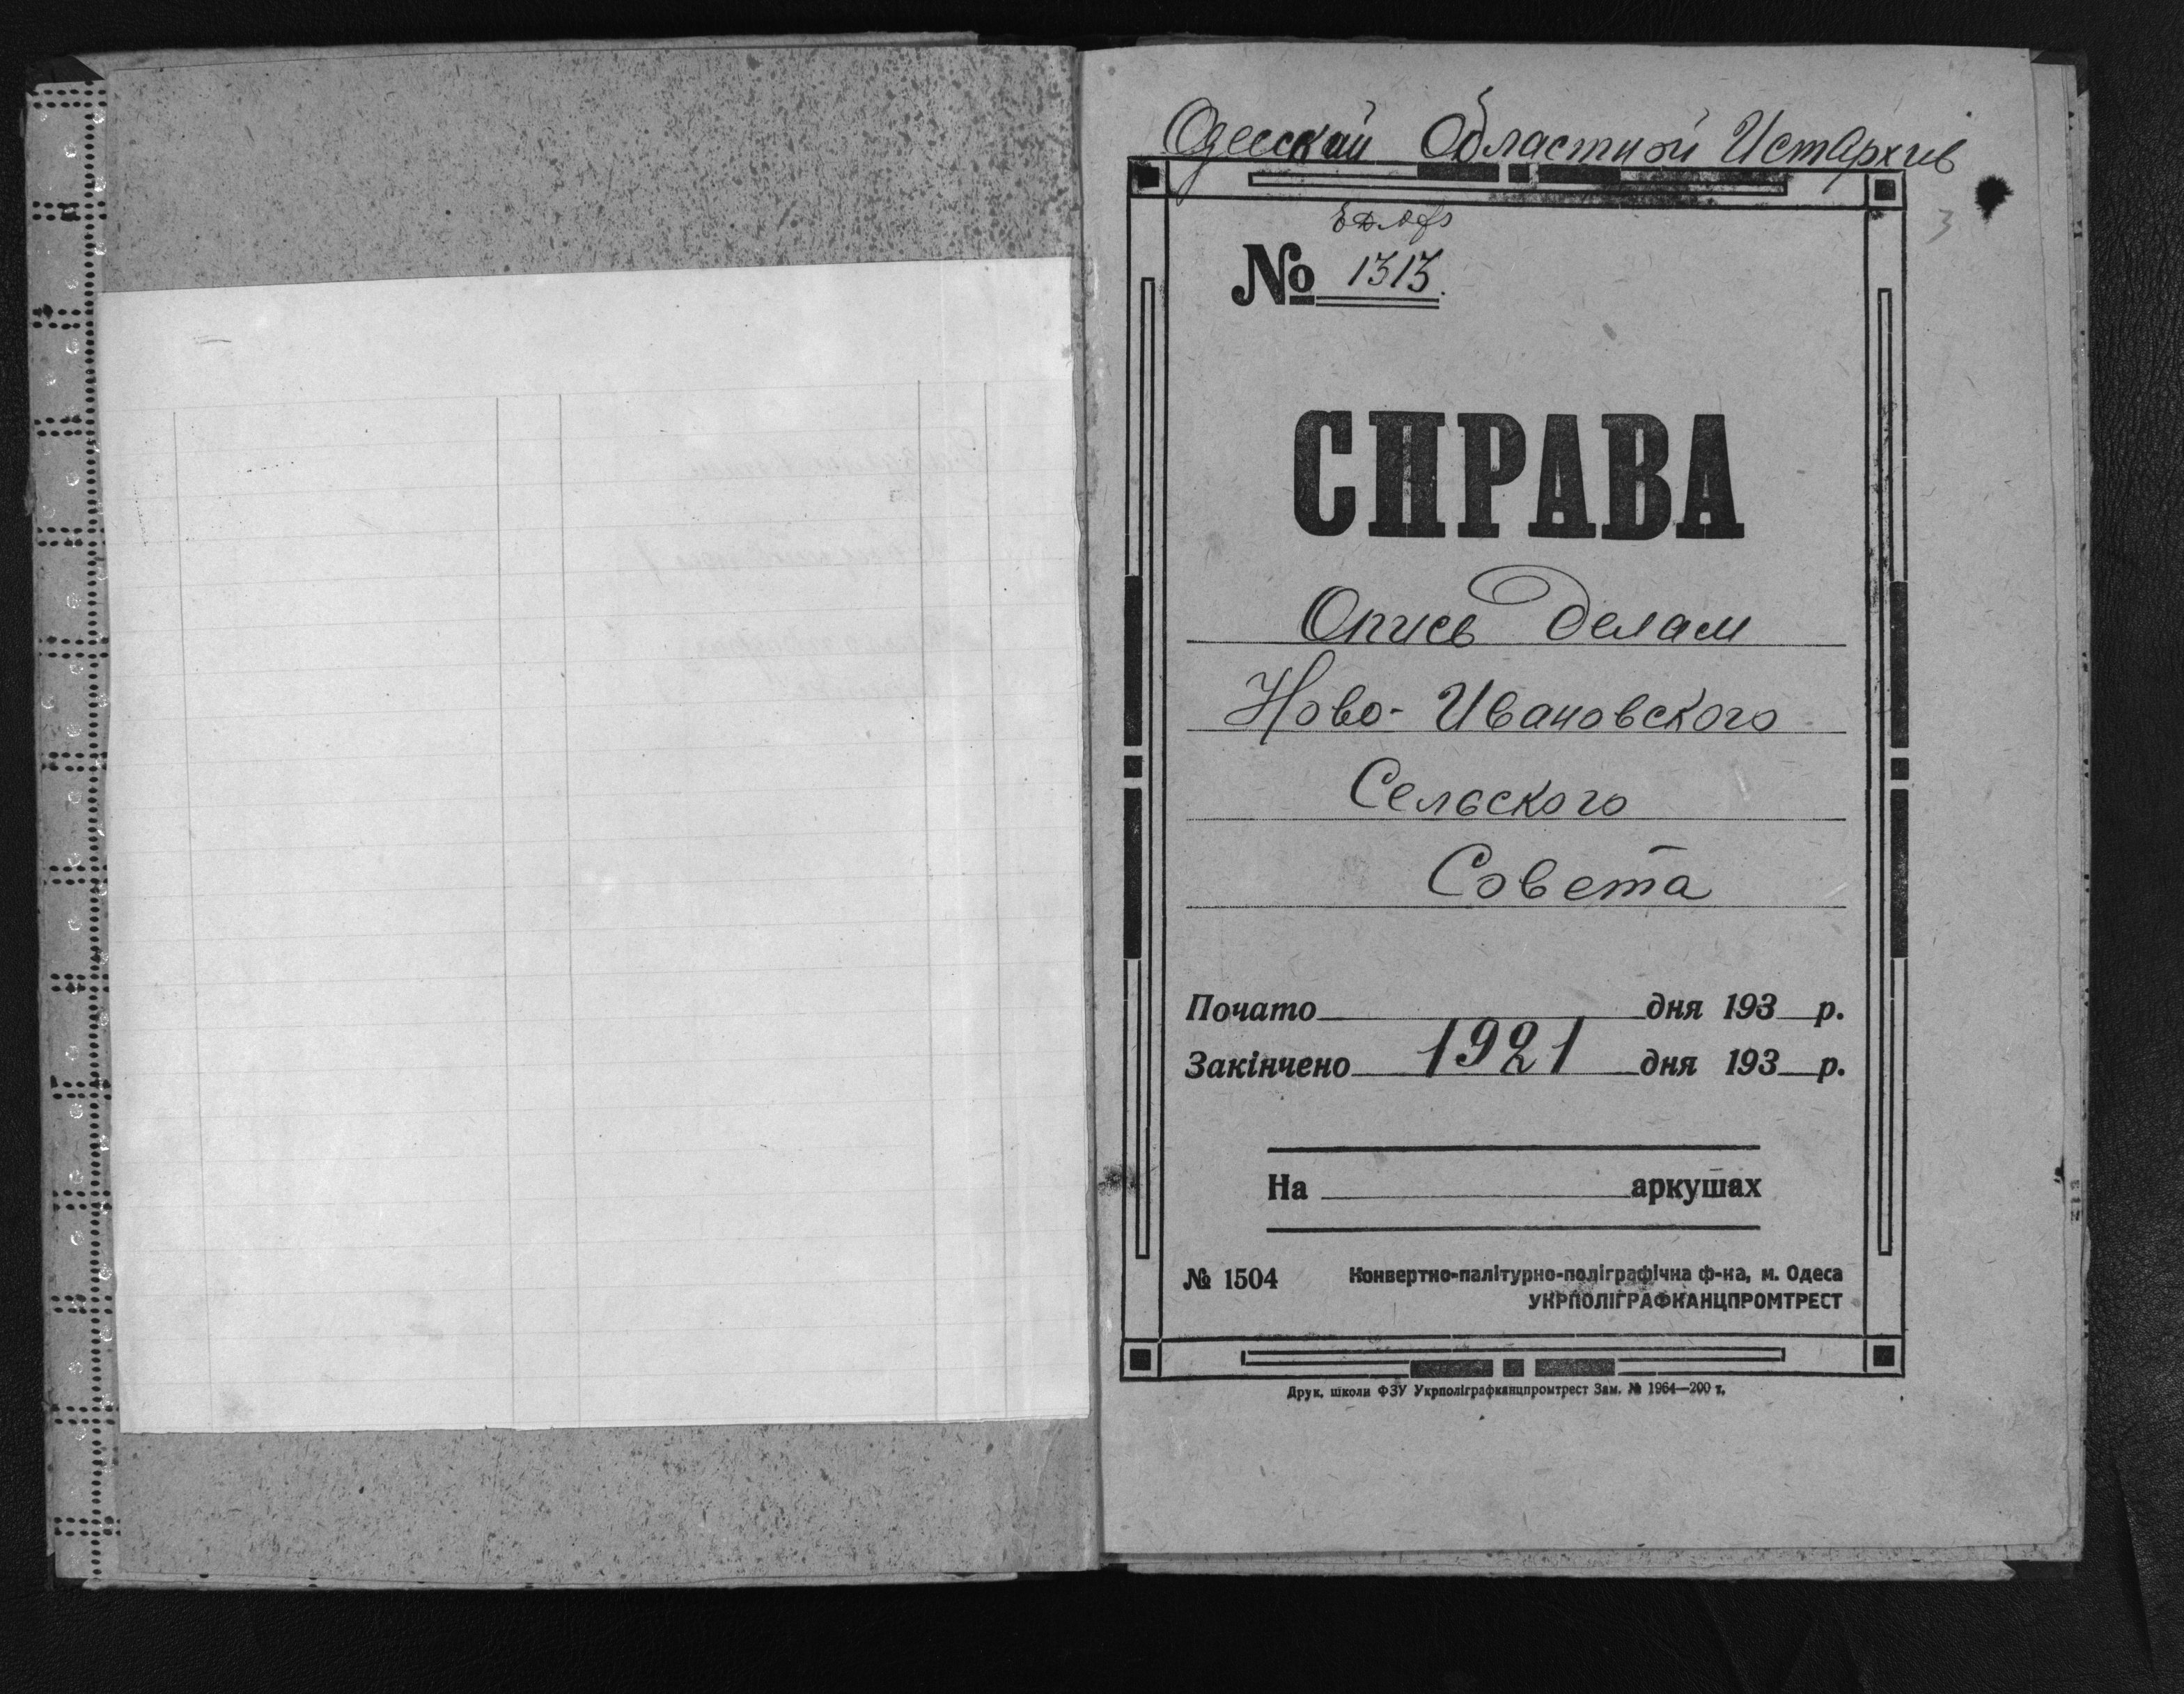 Одесский Областной Истархив
3
№ 1313.
СПРАВА
Опись делам
Ново-Ивановского
Сельского
Совета
Почато дня 193 р.
Закінчено 1921 дня 193 р.
На аркушах
№ 1504 Конвертно-палітурно-поліграфічна ф-ка, м. Одеса
УКРПОЛІГРАФКАНЦПРОМТРЕСТ
Друк. школи ФЗУ Укрполіграфканцпромтрест Зам. № 1964—200 т.